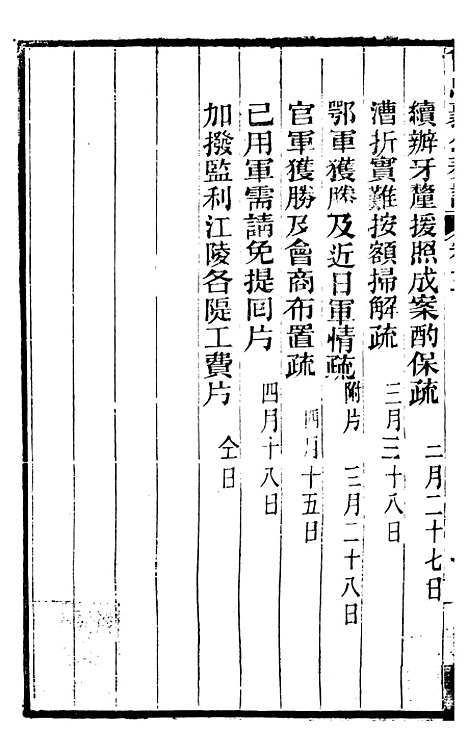 續辦牙釐援照成案酌保疏 二月二十七日
漕折實難按額掃解疏 三月三十八日
鄂軍獲勝及近日軍情疏 附片 三月二十八日
官軍獲勝及會商布置疏 四月十五日
已用軍需請免提回片 四月十八日
加撥監利江陵各隄工費片 仝日